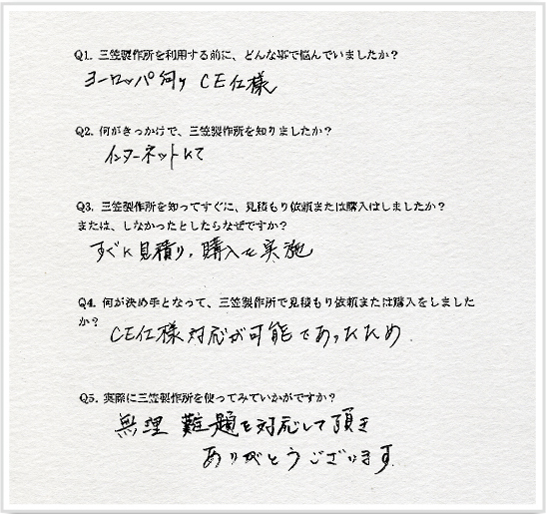 Q1. 三笠製作所を利用する前に、どんな事で悩んでいましたか?
ヨーロッパ向け CE仕様
Q2. 何がきっかけで、三笠製作所を知りましたか?
インターネットにて
Q3. 三笠製作所を知ってすぐに、見積もり依頼または購入はしましたか?
または、しなかったとしたらなぜですか?
すぐに見積り、購入を実施
Q4. 何が決め手となって、三笠製作所で見積もり依頼または購入をしました
か?
CE仕様対応が可能であったため.
Q5. 実際に三笠製作所を使ってみていかがですか?
無理 難題を対応して頂き
ありがとうございます.